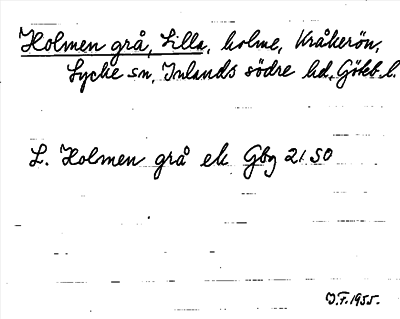 Holmen grå, Lilla, holme, Kråkerön,
Lycke sn, Inlands södre hd, Göteb l.
L. Holmen grå ek Gbg 21 SO
J.F. 1955.